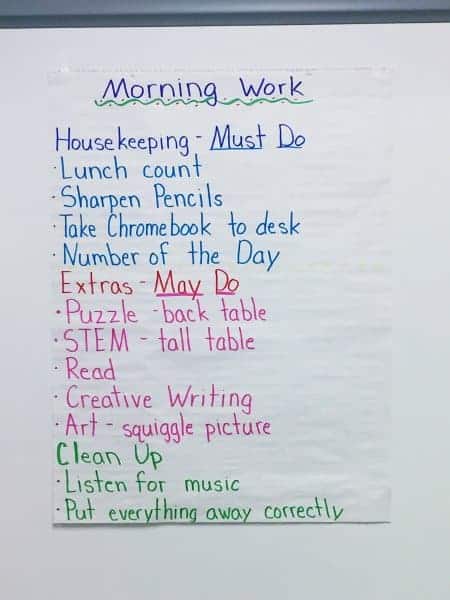 Morning Work
Housekeeping - Must Do
· Lunch count
· Sharpen Pencils
· Take Chromebook to desk
· Number of the Day
Extras - May Do
· Puzzle - back table
· STEM - tall table
· Read
· Creative Writing
· Art - squiggle picture
Clean Up
· Listen for music
· Put everything away correctly